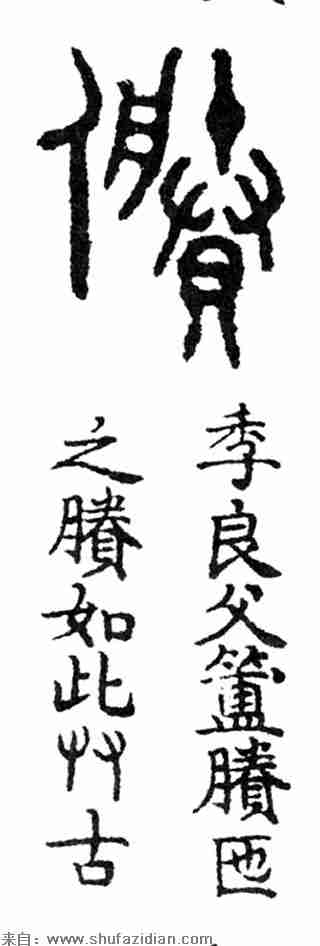 季良父簠賸匜
之賸如此𠬞古
来自：www.shufazidian.com